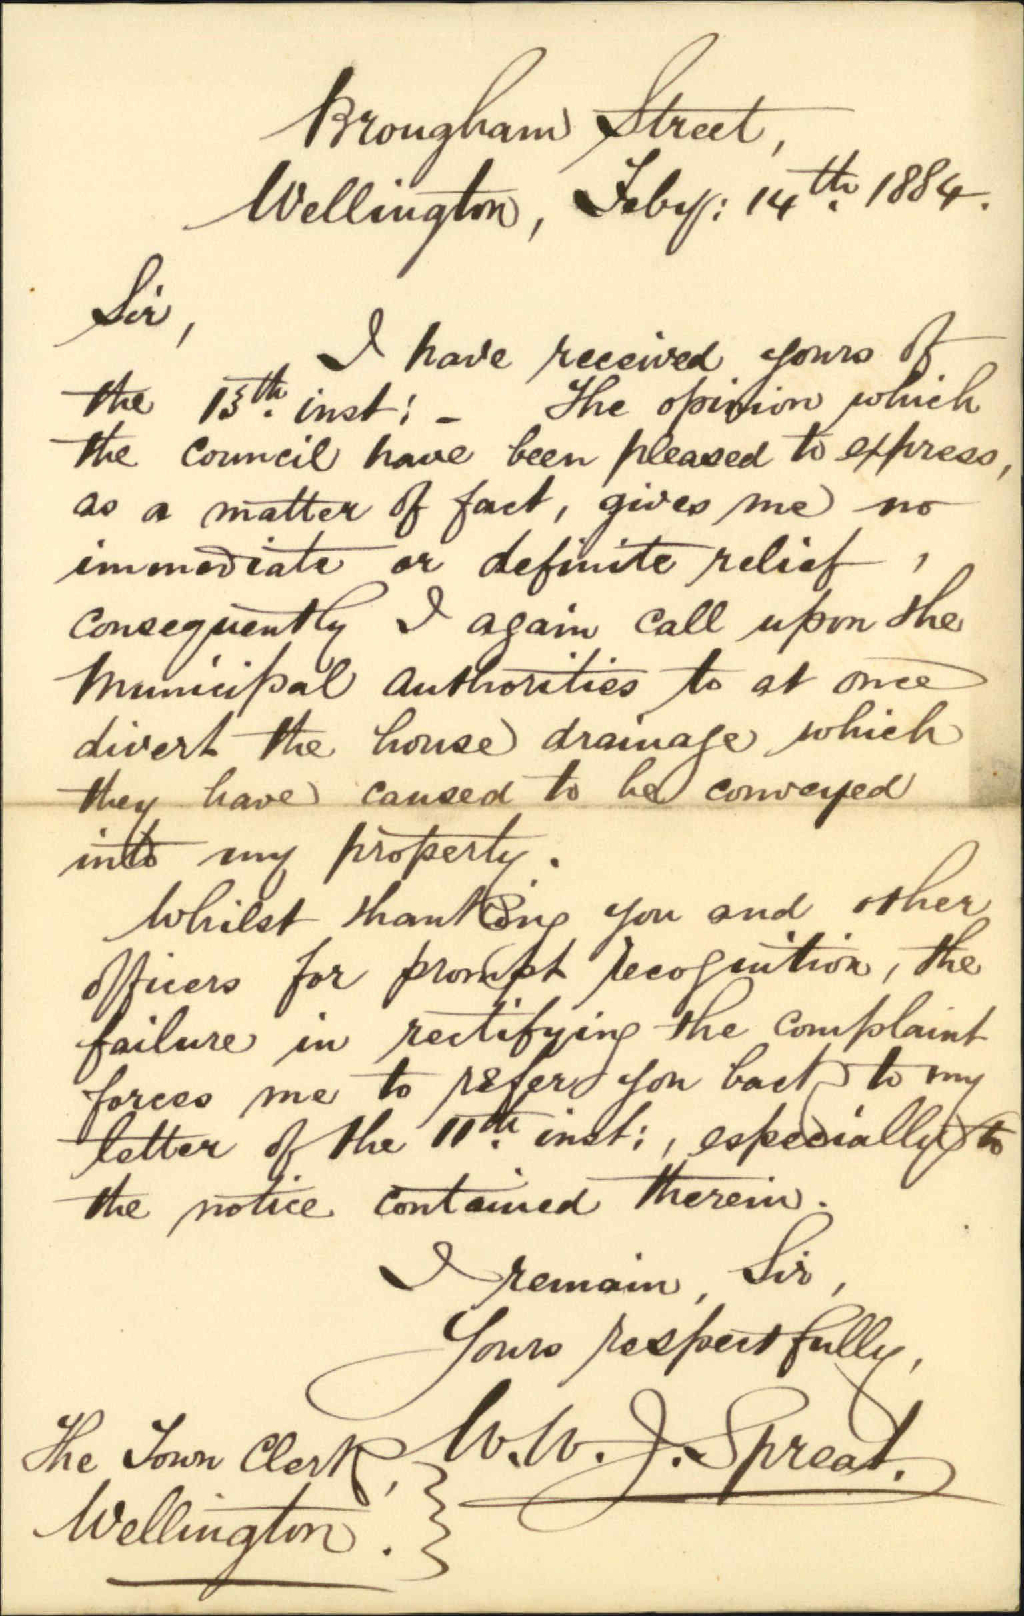 Brougham Street,
Wellington, Feby: 14th. 1884.
Sir,
I have received yours of
the 13th. inst: – The opinion which
the Council have been pleased to express,
as a matter of fact, gives me no
immediate or definite relief,
consequently I again call upon the
Municipal Authorities to at once
divert the house drainage which
they have caused to be conveyed
into my property.
Whilst thanking you and other
officers for prompt recognition, the
failure in rectifying the complaint
forces me to refer you back to my
letter of the 11th. inst:, especially to
the notice contained therein.
I remain, Sir,
Yours respectfully,
W. W. J. Spreat.
The Town Clerk,
Wellington.